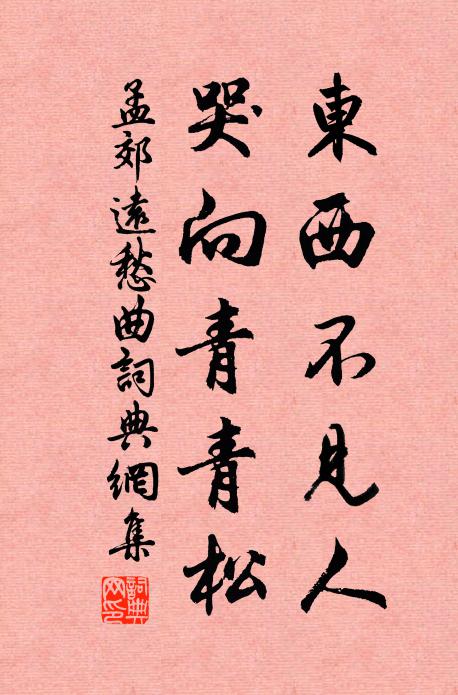 東西不見人
哭向青青松
孟郊遠愁曲詞典網集
詞典網印